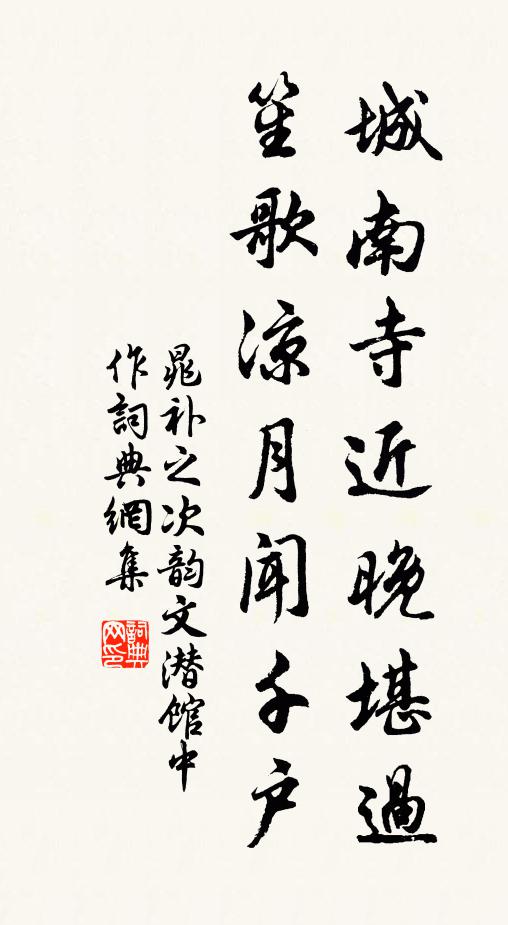 城南寺近晚堪過
笙歌凉月聞千户
晁补之次韵文潜馆中
作詞典網集
詞典网印